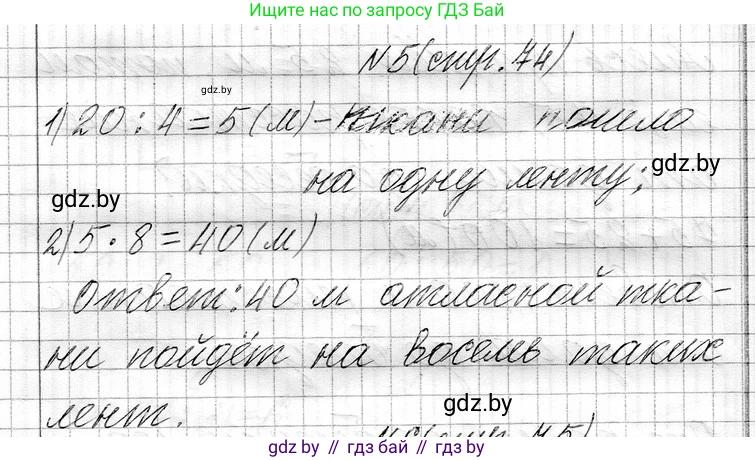 Ищите нас по запросу ГДЗ Бай
N5 (стр. 74)
gdz.by
1) 20 : 4 = 5 (м) - ткани пошло
на одну ленту;
gdz.by
gdz.by
2) 5 · 8 = 40 (м)
gdz.by
Ответ: 40 м атласной тка-
ни пойдёт на восемь таких
лент.
gdz.by
gdz.by // гдз бай // gdz.by